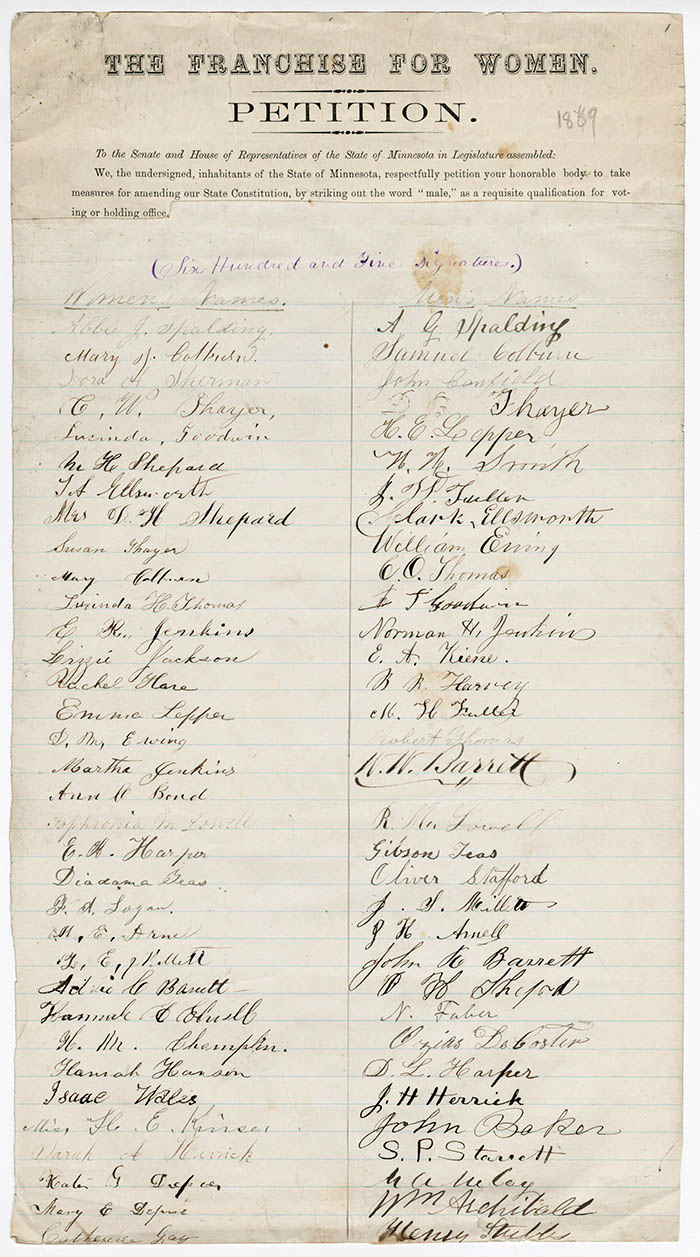 THE FRANCHISE FOR WOMEN.
PETITION.
1869
To the Senate and House of Representatives of the State of Minnesota in Legislature assembled:
We, the undersigned, inhabitants of the State of Minnesota, respectfully petition your honorable body to take
measures for amending our State Constitution, by striking out the word "male," as a requisite qualification for vot-
ing or holding office.
(Six Hundred and Five signatures.)
Women's Names.
Abbie J. Spalding,
Mary J. Colburn.
Dora A Sherman
C, W, Thayer,
Lucinda, Goodwin
M H Shepard
Ellsworth
Mrs D. H Shepard
Susan Thayer
Mary Colburn
Lucinda H Thomas
E R. Jenkins
Lizzie Jackson
Rachel Hare
Emma Lepper
D. M, Ewing
Martha Jenkins
Ann C Bond
Sophronia M Lowell
E. A. Harper
Diadama Geas
Logan.
E, Arne
E,
Addie C Barrett
Hannah C
H. M. Champlin.
Hannah Hanson
Isaac Wales
Miss H. E. Kinser
Sarah A Herrick
Kate G
Mary E Depue
Catherine Gay
Men's Names
A G Spalding
Samuel Colburn
John Canfield
Thayer
H. E. Lepper
Smith
J. W. Fuller
Clark Ellsworth
William Ewing
C. O. Thomas
Goodwin
Norman H, Jenkins
E. A. Kiene.
B R. Harvey
M. H Fuller
Robert Thomas
W. W. Barrett
R. M. Lowell
Gibson Geas
Oliver Stafford
J. S. Millett
J H Arnell
John K Barrett
N. Faber
Ozias DeCoster
D. L. Harper
J. H Herrick
John Baker
S. P. Starrett
Wm Archibald
Henry Stubbs